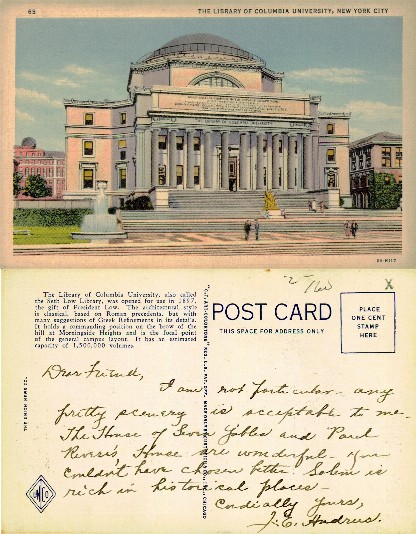 65
THE LIBRARY OF COLUMBIA UNIVERSITY, NEW YORK CITY
The Library of Columbia University, also called
the Seth Low Library, was opened for use in 1897,
the gift of President Low. The architectural style
is classical, based on Roman precedents, but with
many suggestions of Greek Refinements in its details.
It holds a commanding position on the brow of the
hill at Morningside Heights and is the focal point
of the general campus layout. It has an estimated
capacity of 1,500,000 volumes.
POST CARD
THIS SPACE FOR ADDRESS ONLY
PLACE
ONE CENT
STAMP
HERE
X
THE UNION NEWS CO.
Dear Friend,
I am not particular - any
pretty scenery is acceptable to me.
The House of Seven Gables and Paul
Revere's House are wonderful. You
couldn't have chosen better. Salem is
rich in historical places -
Cordially yours,
J. E. Andrus.